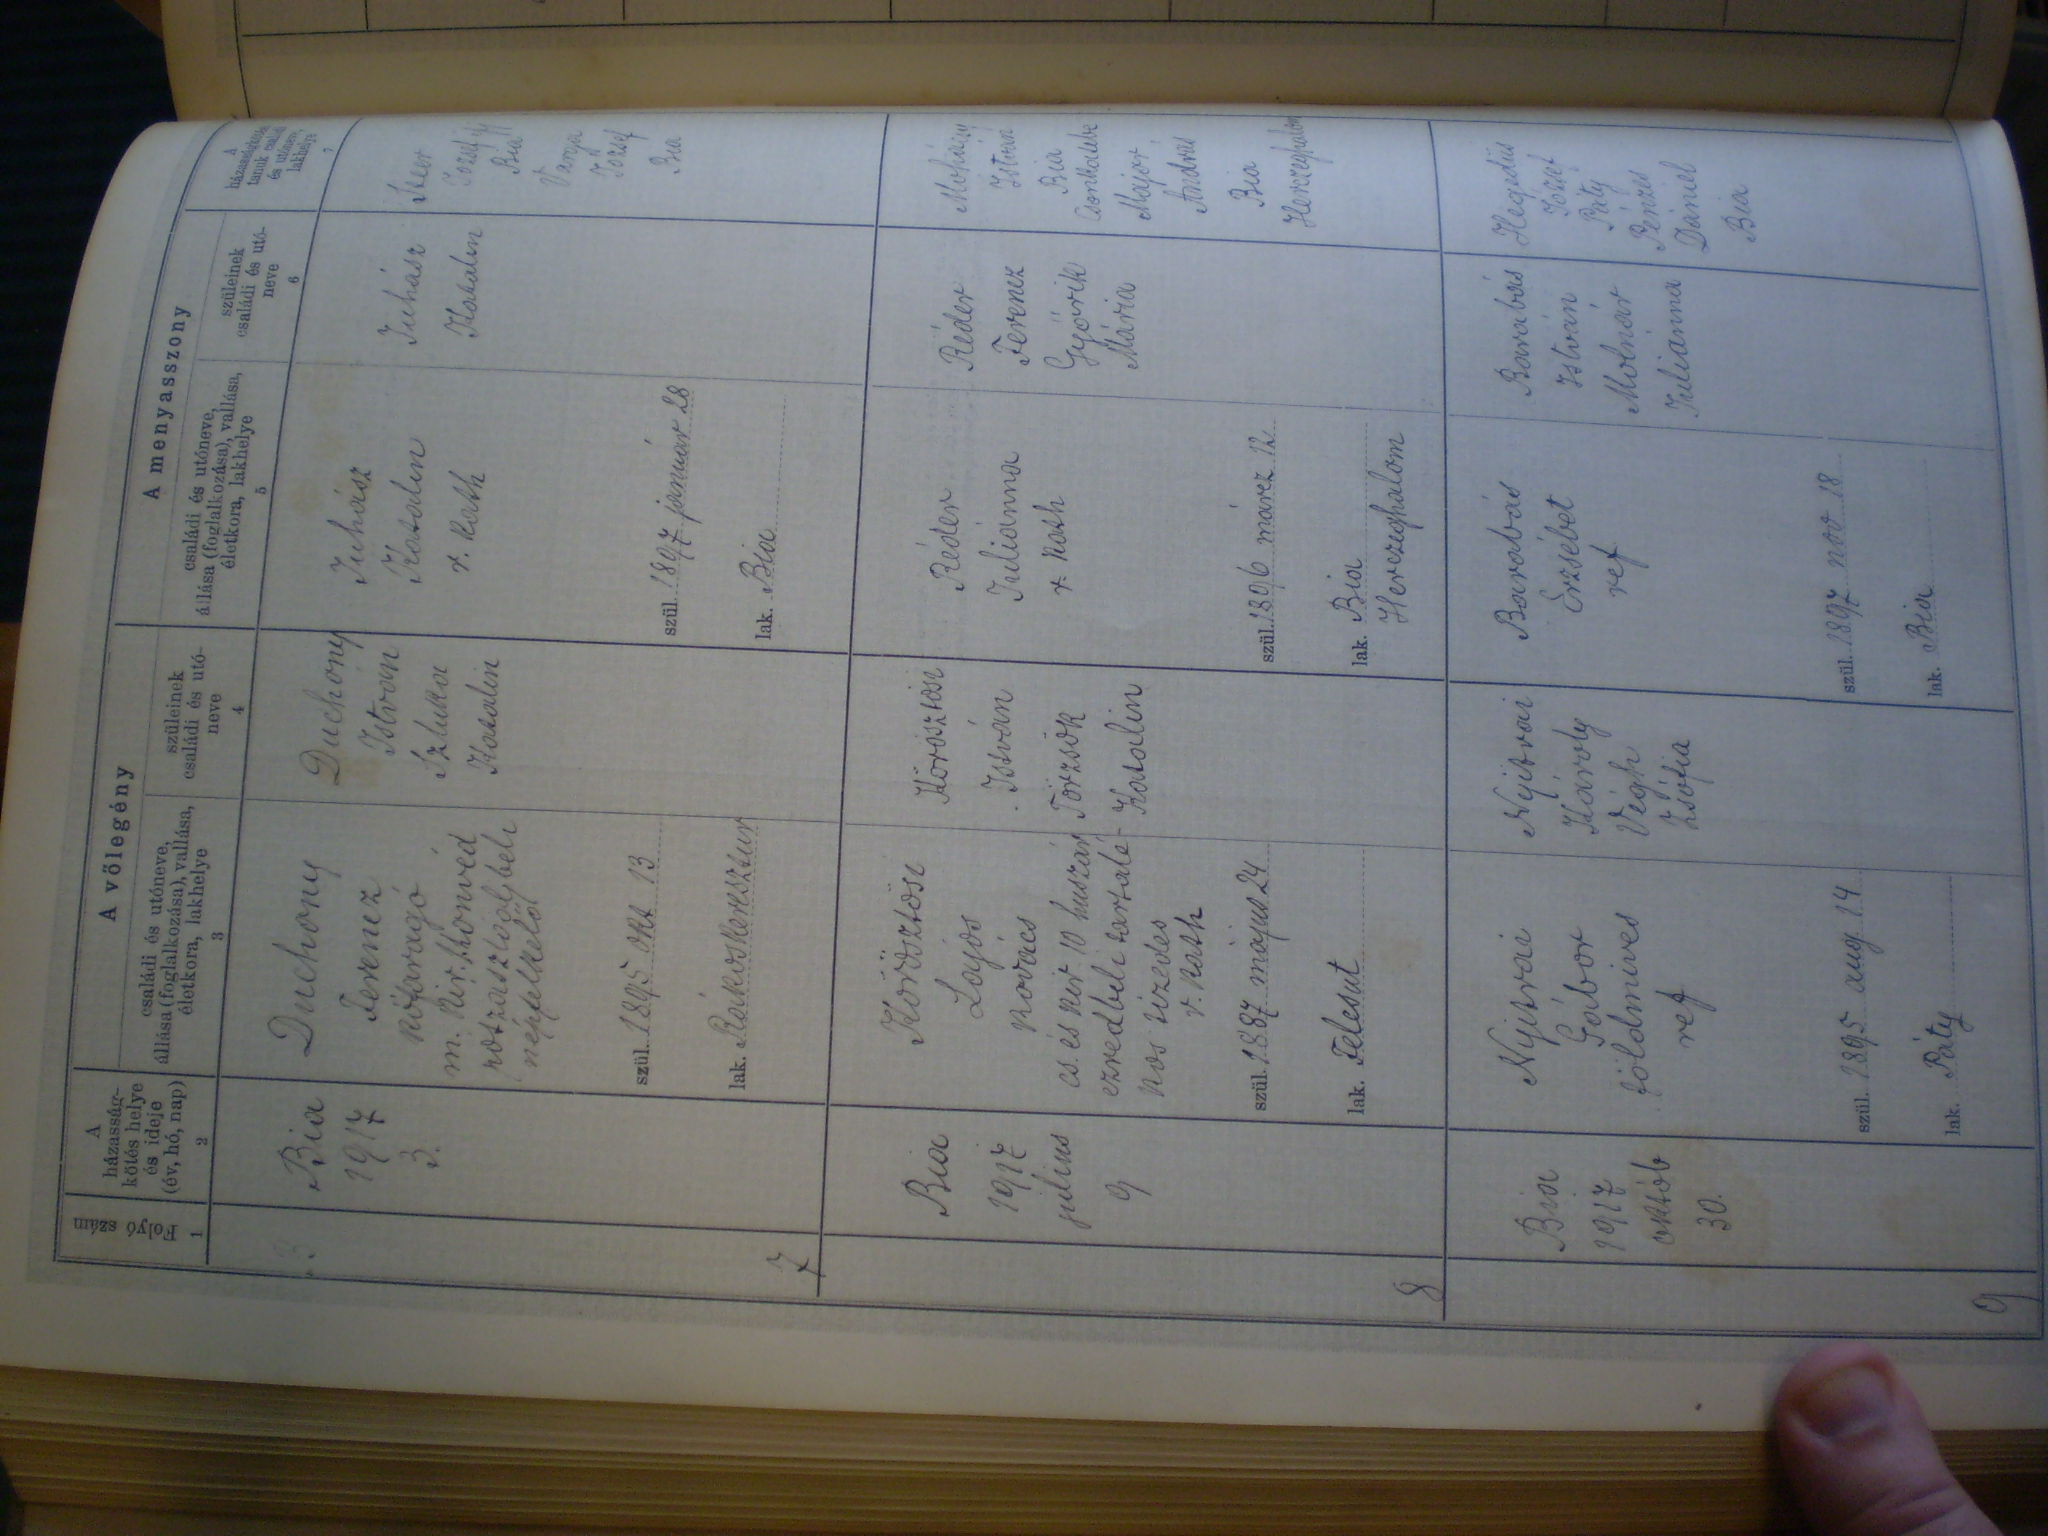 A vőlegény
A menyasszony
Folyó
szám
1
A
házasság-
kötés helye
és ideje
(év, hó, nap)
2
családi és utóneve,
állása (foglalkozása), vallása,
életkora, lakhelye
3
szüleinek
családi és utó-
neve
4
családi és utóneve,
állása (foglalkozása), vallása,
életkora, lakhelye
5
szüleinek
családi és utó-
neve
6
A
házasságkötési
tanuk családi
és utóneve,
lakhelye
7
7
Bia
1917
3.
Duchony
Ferencz
kőfaragó
m. kir. honvéd
népfelkelő
szül. 1895 okt 13
lak. Rákoskeresztur
Duchony
István
Szluka
Katalin
Juhász
Katalin
r. kath
szül. 1897 január 28
lak. Bia
Juhász
Katalin
József
Bia
Varga
József
Bia
8
Bia
1917
julius
9
Körösztösi
Lajos
kovács
cs. és kir 10 huszár
ezredbeli tartalé-
kos tizedes
r. kath
szül. 1887 május 24
lak. Felcsut
Körösztösi
István
Törzsök
Katalin
Réder
Juliánna
r. kath
szül. 1896 márcz 12
lak. Bia
Herczeghalom
Réder
Ferencz
Győrik
Mária
István
Bia
Major
András
Bia
Herczeghalom
9
Bia
1917
október
30.
Nyitrai
Gábor
földmives
ref
szül. 1895 aug 14
lak. Páty
Nyitrai
Károly
Végh
Zsófia
Barabás
Erzsébet
ref
szül. 1897 nov 18
lak. Bia
Barabás
István
Molnár
Julianna
Hegedüs
József
Páty
Pénzes
Dániel
Bia